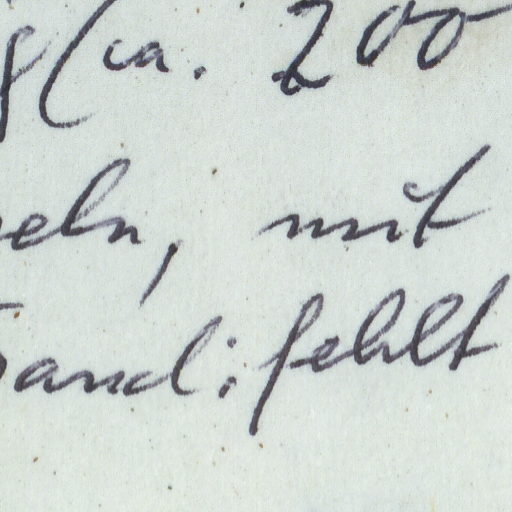 g (ca. 200
eln, mit
Band; fehlt